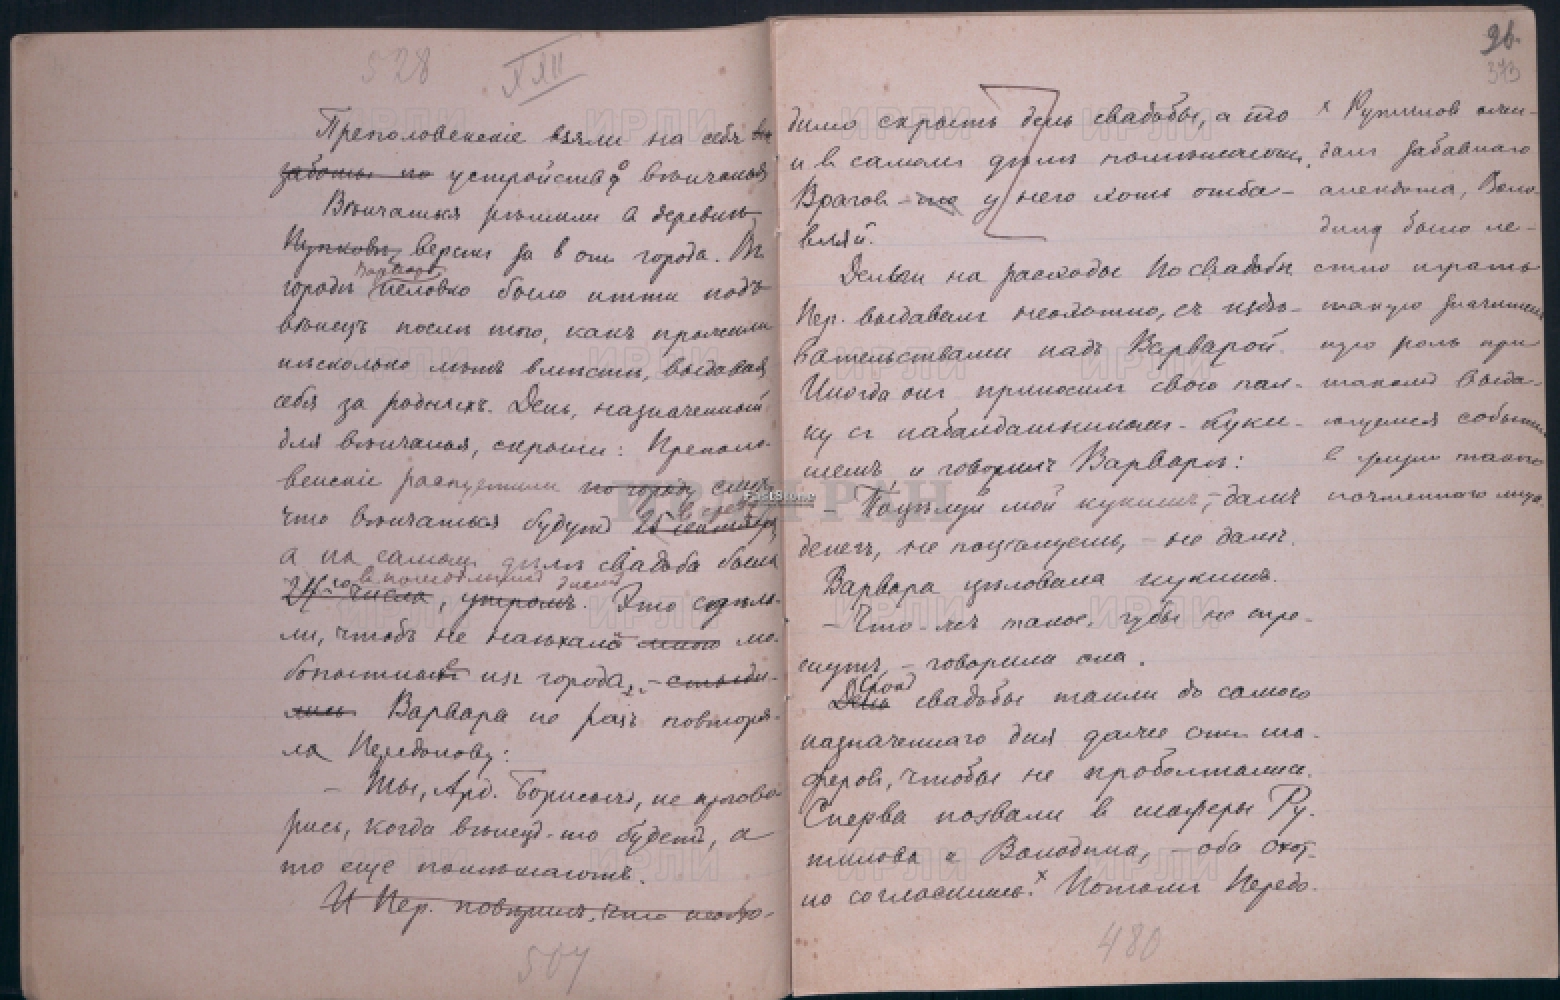 528
XXII
Преполовенскіе взяли на себя
заботы по устройство вѣнчанья
Вѣнчаться рѣшили в деревнѣ
верстъ за 6 отъ города. Въ
городѣ Варварѣ неловко было итти подъ
вѣнецъ послѣ того, какъ прожили
нѣсколько лѣтъ вмѣстѣ, выдавая
себя за родныхъ. День, назначенный
для вѣнчанья, скрыли: Преполо-
венскіе распустили по городу слухъ
что вѣнчаться будутъ 25 сентября
а на самом дѣлѣ свадьба была
24го числа, утромъ. Это сдѣла-
ли, чтобъ не наѣхало много лю-
бопытныхъ изъ города, – стыди-
лись Варвара не разъ повторя-
ла Передонову:
– Ты, Ард. Борисычъ, не прогово-
рись, когда вѣнецъ-то будетъ, а
то еще помѣшаютъ.
И Пер. повѣрилъ, что необхо-
507
96.
373
димо скрыть день свадьбы, а то
и в самомъ дѣлѣ помѣшаютъ.
Врагов-то у него хоть отба-
вляй.
Деньги на расходы по свадьбѣ
Пер. выдавалъ неохотно, съ издѣ-
вательствами надъ Варварой.
Иногда онъ приносилъ свою пал-
ку съ набалдашникомъ-куки-
шемъ и говорилъ Варварѣ:
– Поцѣлуй мой кукишъ, – дамъ
денегъ, не поцѣлуешь, – не дамъ.
Варвара цѣловала кукишъ.
– Что-жъ такое, губы не трес-
нутъ, – говорила она.
День Срокъ свадьбы таили до самого
назначеннаго дня даже отъ ша-
феровъ, чтобы не проболтались.
Сперва позвали в шаферы Ру-
тилова и Володина, – оба охот-
но согласились.х Потомъ Передо-
х Рутиловъ ожи-
далъ забавнаго
анекдота, Воло-
дину было ле-
стно играть
такую значитель
ную роль при
такомъ выда-
ющемся событіи
в жизни такого
почтеннаго лица.
480
ИРЛИ
ИРЛИ РАН
FastStone